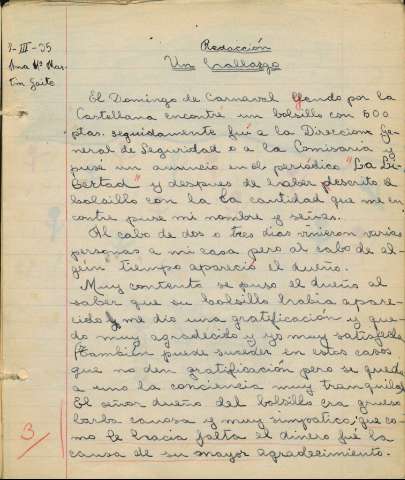 7-III-35
Ana Mª Mar-
tín Gaite
Redacción
Un hallazgo
El Domingo de Carnaval yendo por la
Castellana encontré un bolsillo con 500
ptas. seguidamente fuí a la Direccion Ge
neral de Seguridad o a la Comisaria y
puse un anuncio en el periódico "La Li
bertad" y despues de haber descrito el
bolsillo con la la cantidad que me en
contre puse mi nombre y señas.
Al cabo de dos o tres dias vinieron varias
personas a mi casa pero al cabo de al-
gún tiempo apareció el dueño.
Muy contento se puso el dueño al
saber que su bolsillo habia apare-
cido y me dio una gratificación y que-
do muy agradecido y yo muy satisfecha
También puede suceder en estos casos
que no den gratificación pero se queda
a uno la conciencia muy tranquila
El señor dueño del bolsillo era grueso
barba canosa y muy simpatico; que co-
mo le hacia falta el dinero fué la
causa de su mayor agradecimiento.
3